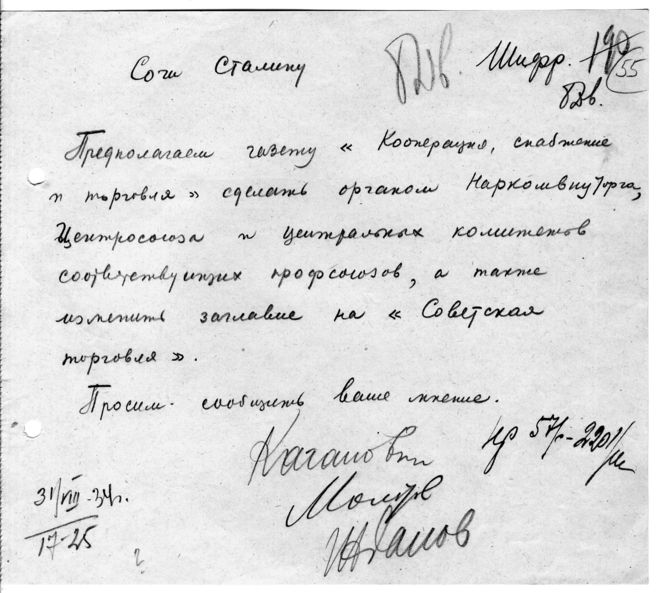 Сочи Сталину
Шифр. 190
55
Предполагаем газету « Кооперация, снабжение
и торговля » сделать органом Наркомвнуторга,
Центросоюза и центральных комитетов
соответствующих профсоюзов, а также
изменить заглавие на « Советская
торговля ».
Просим сообщить ваше мнение.
Каганович
Молотов
Жданов
31/VIII-34г.
17-25